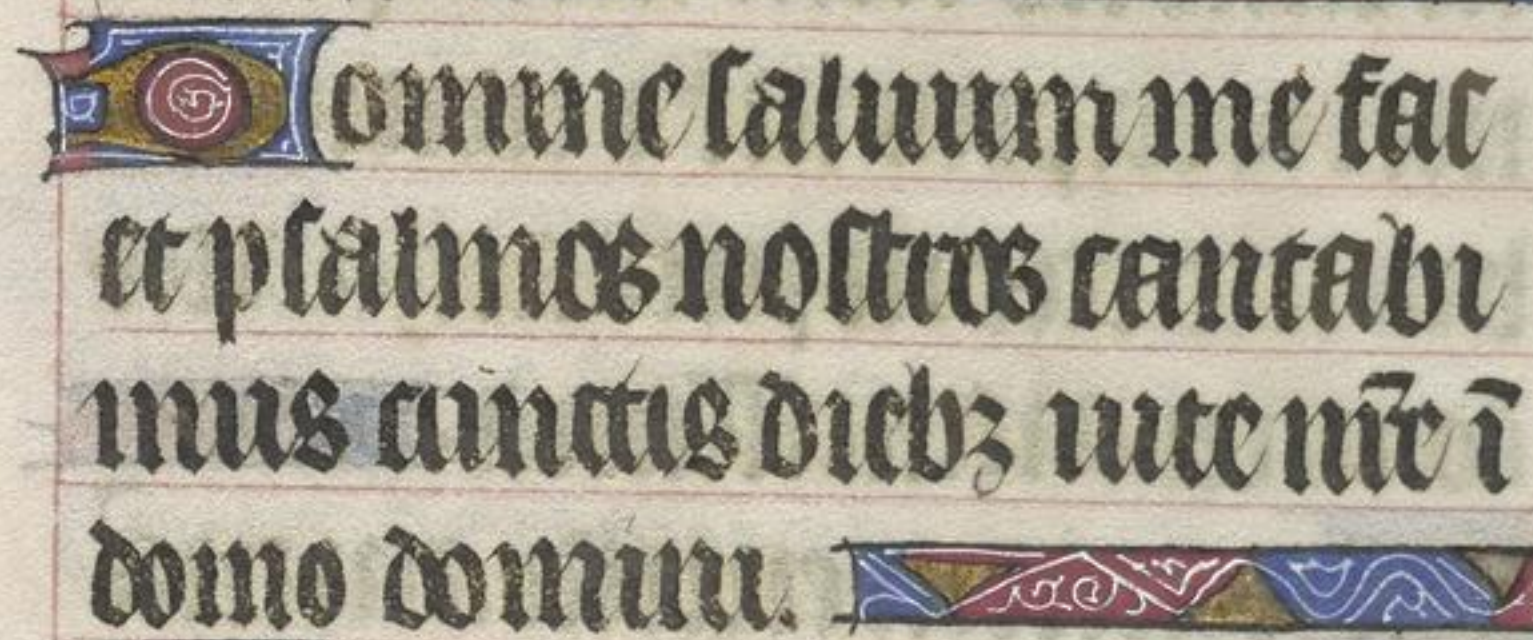 Domine saluum me fac
et psalmos nostros cantabi
mus cunctis diebꝫ uite nr̄e ī
domo domini.